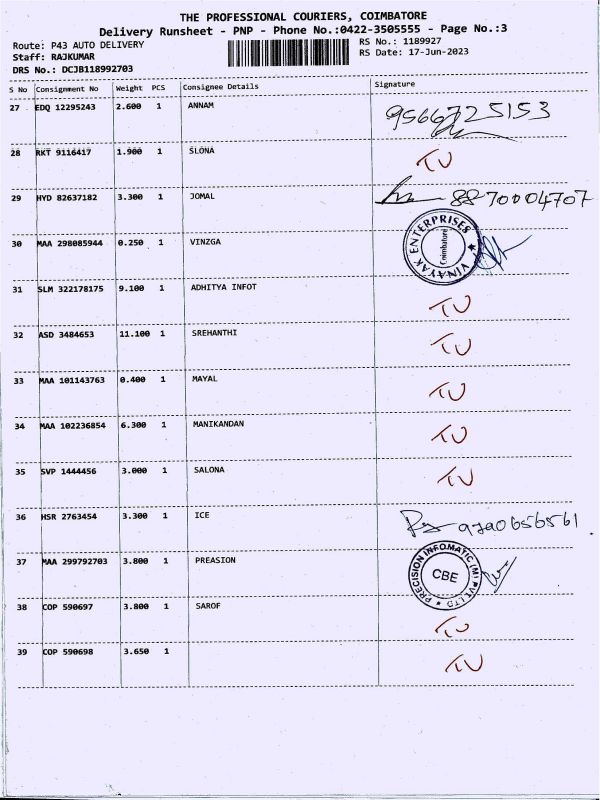 THE PROFESSIONAL COURIERS, COIMBATORE
Delivery Runsheet - PNP - Phone No.:0422-3505555 - Page No.:3
Route: P43 AUTO DELIVERY RS No.: 1189927
Staff: RAJKUMAR RS Date: 17-Jun-2023
DRS No.: DCJB118992703
S No Consignment No Weight PCS Consignee Details Signature
27 EDQ 12295243 2.600 1 ANNAM 9566725153
28 RKT 9116417 1.900 1 SLONA TU
29 HYD 82637182 3.300 1 JOMAL 8870004707
30 MAA 298085944 0.250 1 VINZGA VINAYAK ENTERPRISES Coimbatore
31 SLM 322178175 9.100 1 ADHITYA INFOT TU
32 ASD 3484653 11.100 1 SREHANTHI TU
33 MAA 101143763 0.400 1 MAYAL TU
34 MAA 102236854 6.300 1 MANIKANDAN TU
35 SVP 1444456 3.000 1 SALONA TU
36 HSR 2763454 3.300 1 ICE
37 MAA 299792703 3.800 1 PREASION PRECISION INFOMATIC (M) PVT LTD CBE
38 COP 590697 3.800 1 SAROF TU
39 COP 590698 3.650 1 TU